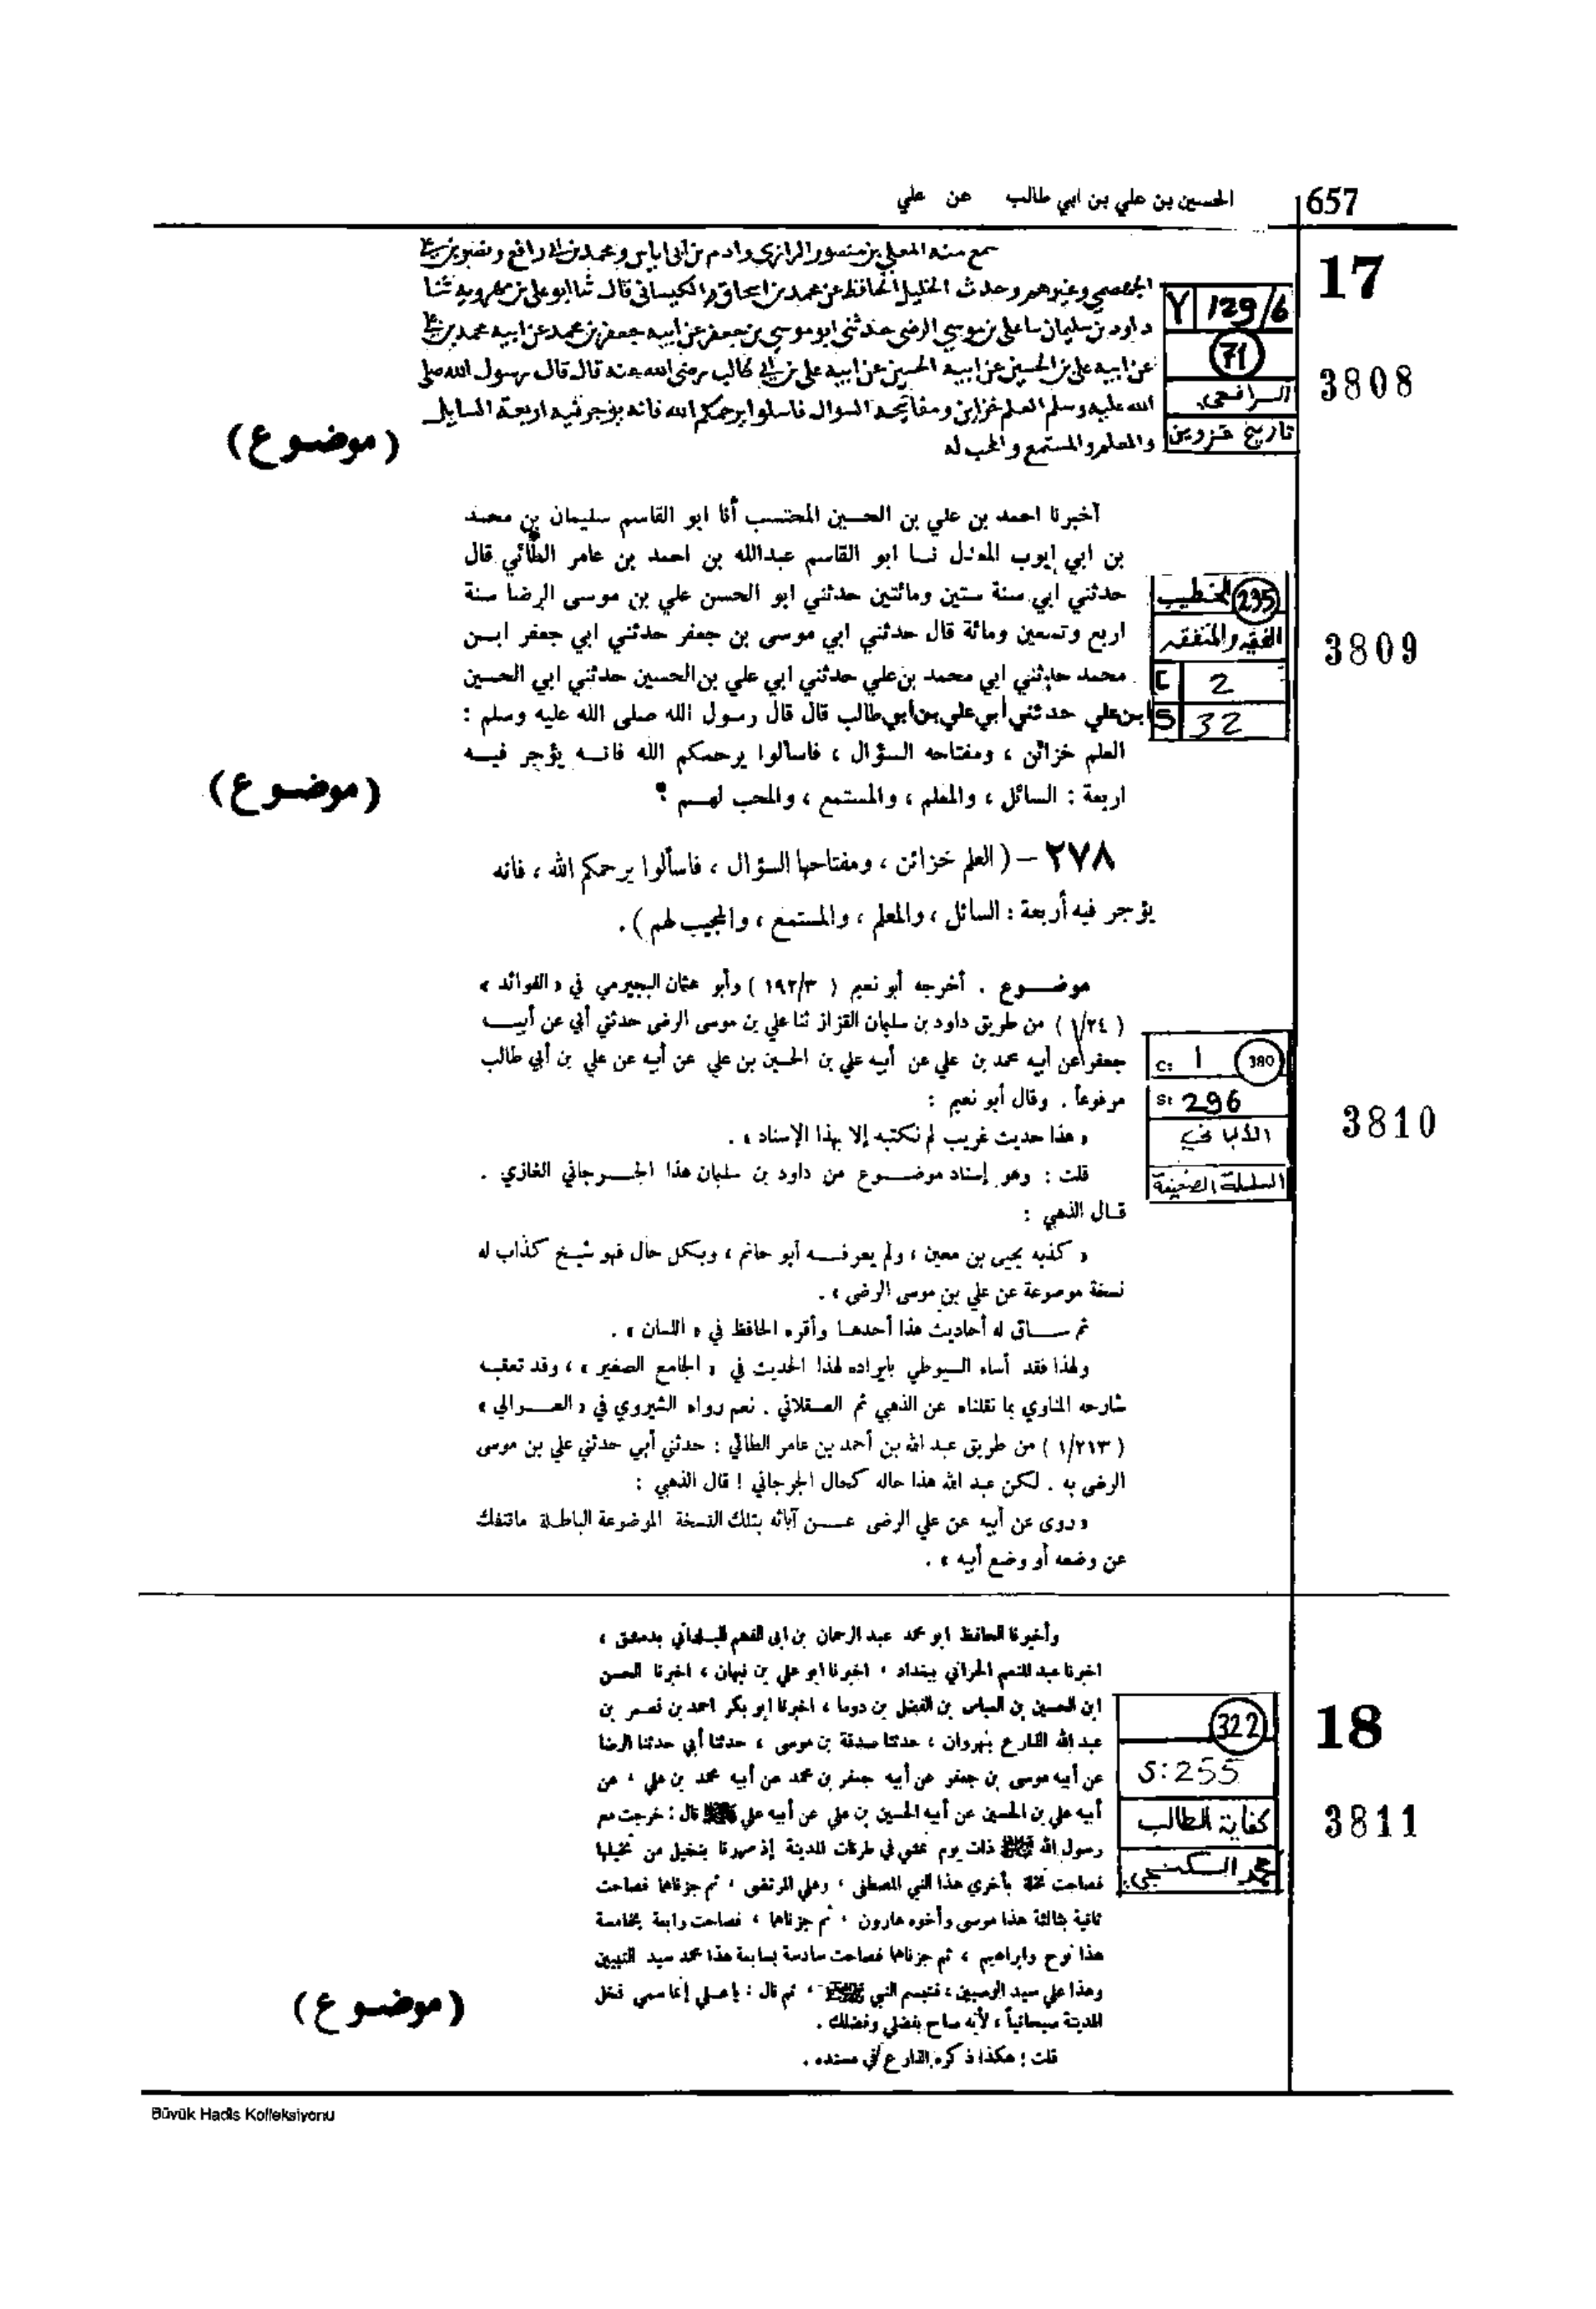 الحسين بن علي بن ابي طالب عن علي
657
17
سمع منه المعلى بن منصور الرازي وادم بن ابى اياس ومحمد بن ابى رافع
وغيرهم وحدث الخليل الحافظ عن محمد بن اسحاق الكيسانى قال ثنا ابو على بن مهرويه ثنا
داود بن سليمان سا على بن موسي الرضى حدثنى ابو موسي بن جعفر عن ابيه جعفر بن محمد عن ابيه محمد بن على
عن ابيه على بن الحسين عن ابيه الحسين عن ابيه على بن ابى طالب رضى الله عنه قال قال رسول الله صلى
الله عليه وسلم العلم خزاين ومفاتيحه السوال فاسلوا يرحمكم الله فانه يؤجر فيه اربعة السايل
والمعلم والمستمع والمحب له
(موضوع)
Y 129/6
71
الرافعي
تاريخ قزوين
3808
أخبرنا احمد بن علي بن الحسين المحتسب أنا ابو القاسم سليمان بن محمد
بن ابي ايوب المعدل نا ابو القاسم عبدالله بن احمد بن عامر الطائي قال
حدثني ابي سنة ستين ومائتين حدثني ابو الحسن علي بن موسى الرضا سنة
اربع وتسعين ومائة قال حدثني ابي موسى بن جعفر حدثني ابي جعفر ابن
محمد حدثني ابي محمد بن علي حدثني ابي علي بن الحسين حدثني ابي الحسين
ابن علي حدثني أبي علي بن أبي طالب قال قال رسول الله صلى الله عليه وسلم :
العلم خزائن ، ومفتاحه السؤال ، فاسألوا يرحمكم الله فانه يؤجر فيه
اربعة : السائل ، والمعلم ، والمستمع ، والمحب لهم ؟
(موضوع)
الخطيب 235
الفقيه والمتفقه
C 2
S 32
3809
٢٧٨ – ( العلم خزائن ، ومفتاحها السؤال ، فاسألوا يرحمكم الله ، فانه
يؤجر فيه أربعة : السائل ، والمعلم ، والمستمع ، والمجيب لهم ) .
موضوع . أخرجه أبو نعيم ( ١٩٢/٣ ) وأبو عثمان البجيرمي في « الفوائد »
( ١/٢٤ ) من طريق داود بن سليمان القزاز ثنا علي بن موسى الرضى حدثني أبي عن أبيه
جعفر عن أبيه محمد بن علي عن أبيه علي بن الحسين بن علي عن أبيه عن علي بن أبي طالب
مرفوعاً . وقال أبو نعيم :
« هذا حديث غريب لم نكتبه إلا بهذا الإسناد » .
قلت : وهو إسناد موضوع من داود بن سليمان هذا الجرجاني الغازي .
قال الذهبي :
« كذبه يحيى بن معين ، ولم يعرفه أبو حاتم ، وبكل حال فهو شيخ كذاب له
نسخة موضوعة عن علي بن موسى الرضى » .
ثم ساق له أحاديث هذا أحدها وأقره الحافظ في « اللسان » .
ولهذا فقد أساء السيوطي بايراده لهذا الحديث في « الجامع الصغير » ، وقد تعقبه
شارحه المناوي بما نقلناه عن الذهبي ثم العسقلاني . نعم رواه الشيروي في « العوالي »
( ١/٢١٣ ) من طريق عبد الله بن أحمد بن عامر الطائي : حدثني أبي حدثني علي بن موسى
الرضى به . لكن عبد الله هذا حاله كحال الجرجاني ! قال الذهبي :
« روى عن أبيه عن علي الرضى عن آبائه بتلك النسخة الموضوعة الباطلة ماتنفك
عن وضعه أو وضع أبيه » .
C: 1 380
S: 296
الألباني
السلسلة الضعيفة
3810
وأخبرنا الحافظ ابو محمد عبد الرحمان بن ابى الفهم البلداني بدمشق ،
اخبرنا عبد المنعم الحراني ببغداد ، اخبرنا ابو علي بن نبهان ، اخبرنا الحسن
ابن الحسين بن العباس بن الفضل بن دوما ، اخبرنا ابو بكر احمد بن نصر بن
عبد الله الذارع بنهروان ، حدثنا صدقة بن موسى ، حدثنا أبي حدثنا الرضا
عن أبيه موسى بن جعفر عن أبيه جعفر بن محمد عن أبيه محمد بن علي ، عن
أبيه علي بن الحسين عن أبيه الحسين بن علي عن أبيه علي قال : خرجت مع
رسول الله ﷺ ذات يوم نمشي في طرقات المدينة إذ مررنا بنخيل من نخيلها
فصاحت نخلة بأخرى هذا النبي المصطفى ، وعلي المرتضى ، ثم جزناها فصاحت
ثانية بثالثة هذا موسى وأخوه هارون ، ثم جزناها ، فصاحت رابعة بخامسة
هذا نوح وابراهيم ، ثم جزناها فصاحت سادسة بسابعة هذا محمد سيد النبيين
وهذا علي سيد الوصيين ، فتبسم النبي ﷺ ، ثم قال : يا علي إنما سمي نخل
المدينة صيحانياً ، لأنه صاح بفضلي وفضلك .
قلت : هكذا ذكره الذارع في مسنده .
(موضوع)
322
S: 255
كفاية الطالب
محمد الكنجي
18
3811
Büyük Hadis Kolleksiyonu